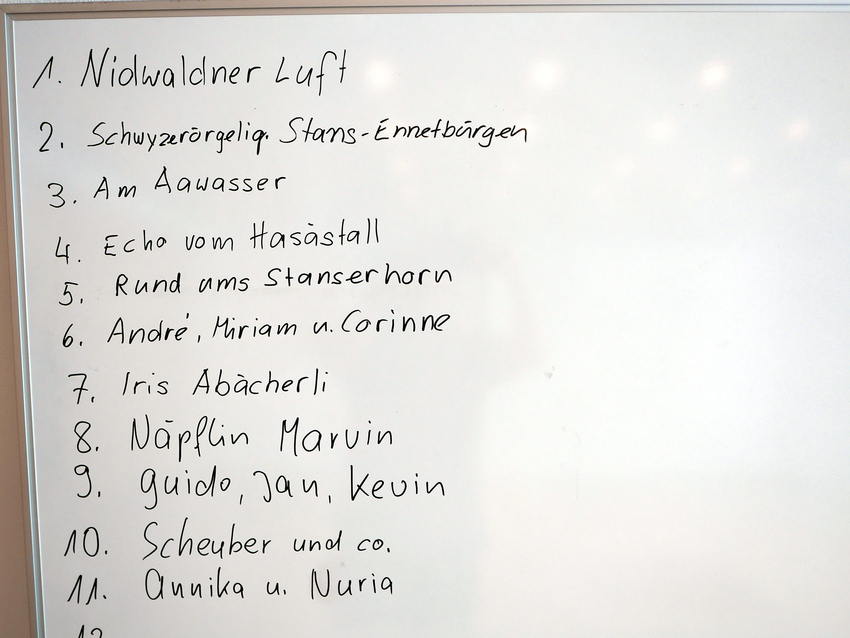 1. Nidwaldner Luft
2. Schwyzerörgeliq. Stans-Ennetbürgen
3. Am Aawasser
4. Echo vom Hasästall
5. Rund ums Stanserhorn
6. André, Miriam u. Corinne
7. Iris Abächerli
8. Näpflin Marvin
9. Guido, Jan, Kevin
10. Scheuber und co.
11. Annika u. Nuria
12